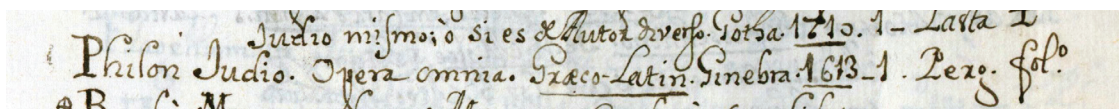 Judio mismo; ò si es de Autor diverso. Gotha. 1710. 1-
Philon Judio. Opera omnia. Græco-Latin. Ginebra. 1613_1. Perg. fol.º